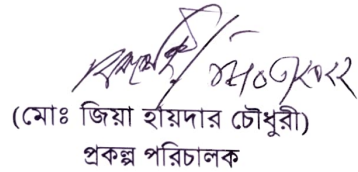 (মোঃ জিয়া হায়দার চৌধুরী)
প্রকল্প পরিচালক